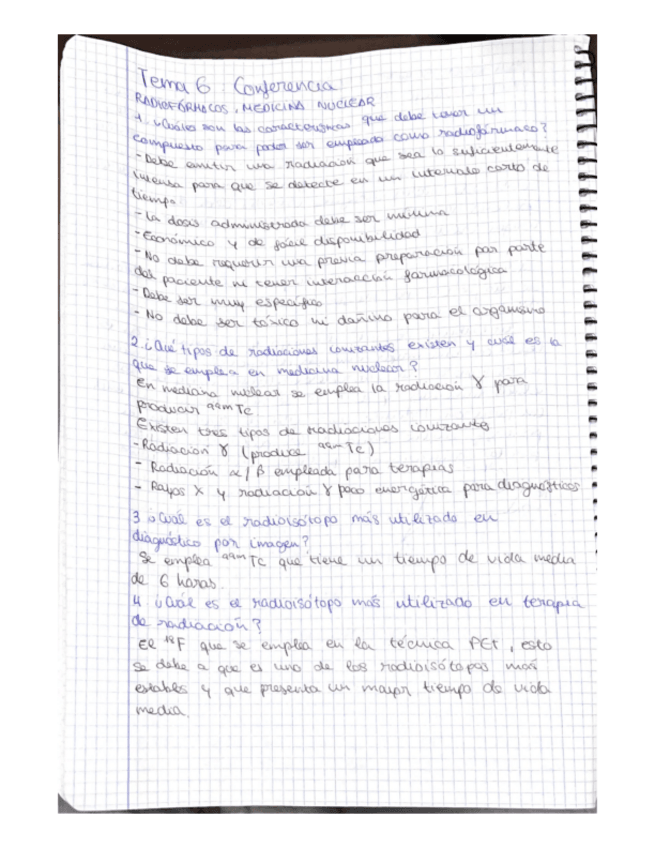 Tema 6 Conferencia
RADIOFÁRMACOS, MEDICINA NUCLEAR
1. ¿Cuáles son las características que debe tener un
compuesto para poder ser empleado como radiofármaco?
- Debe emitir una radiación que sea lo suficientemente
intensa para que se detecte en un intervalo corto de
tiempo
- La dosis administrada debe ser mínima
- Económico y de fácil disponibilidad
- No debe requerir una previa preparación por parte
del paciente ni tener interacción farmacológica
- Debe ser muy específico
- No debe ser tóxico ni dañino para el organismo
2. ¿Qué tipos de radiaciones ionizantes existen y cuál es la
que se emplea en medicina nuclear?
En medicina nuclear se emplea la radiación γ para
producir ⁹⁹ᵐTc
Existen tres tipos de radiaciones ionizantes
- Radiación γ (produce ⁹⁹ᵐTc)
- Radiación α/β empleada para terapias
- Rayos X y radiación γ poco energética para diagnósticos
3 ¿Cuál es el radioisótopo más utilizado en
diagnóstico por imagen?
Se emplea ⁹⁹ᵐTc que tiene un tiempo de vida media
de 6 horas
4 ¿Cuál es el radioisótopo más utilizado en terapia
de radiación?
El ¹⁸F que se emplea en la técnica PET, esto
se debe a que es uno de los radioisótopos más
estables y que presenta un mayor tiempo de vida
media.